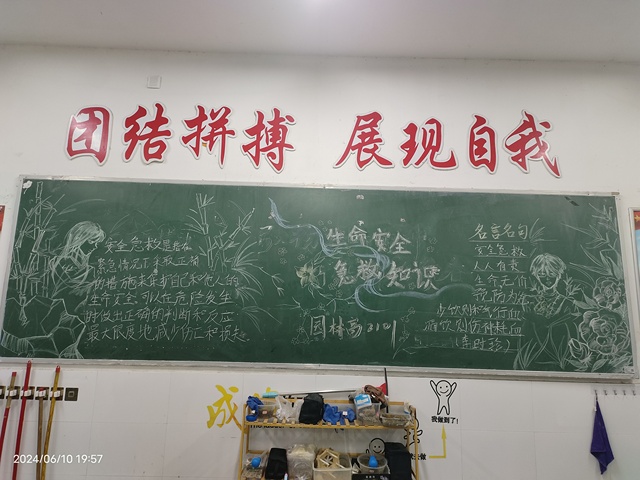 团结拼搏 展现自我
安全急救是指在
紧急情况下采取正确
的措施来保护自己和他人的
生命安全可以在危险发生
时做出正确的判断和反应
最大限度地减少伤亡和损失
生命安全
急救知识
园林高2101
名言名句
安全急救
人人有责
生命无价
预防为本
少饮则和气行血
痛饮则伤神耗血
(李时珍)
我做到了!
2024/06/10 19:57